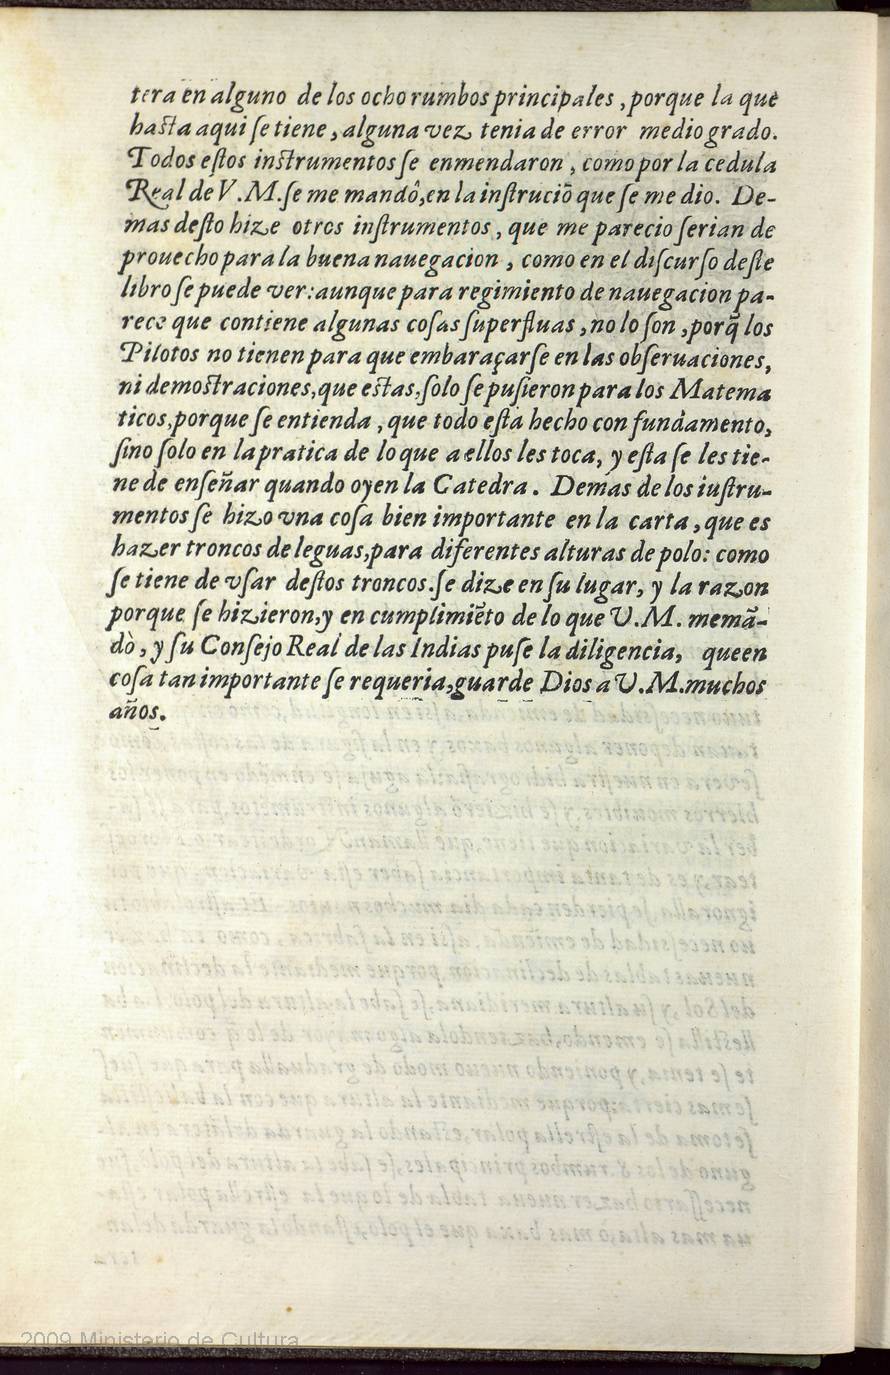 tera en alguno de los ocho rumbos principales, porque la que
hasta aqui se tiene, alguna vez tenia de error medio grado.
Todos estos instrumentos se enmendaron, como por la cedula
Real de V.M. se me mandô, en la instruciõ que se me dio. De-
mas desto hize otros instrumentos, que me parecio serian de
prouecho para la buena nauegacion, como en el discurso deste
libro se puede ver: aunque para regimiento de nauegacion pa-
rece que contiene algunas cosas superfluas, no lo son, porq̃ los
Pilotos no tienen para que embaraçarse en las obseruaciones,
ni demostraciones, que estas, solo se pusieron para los Matema
ticos, porque se entienda, que todo està hecho con fundamento,
sino solo en la pratica de lo que a ellos les toca, y esta se les tie-
ne de enseñar quando oyen la Catedra. Demas de los iustru-
mentos se hizo vna cosa bien importante en la carta, que es
hazer troncos de leguas, para diferentes alturas de polo: como
se tiene de vsar destos troncos. se dize en su lugar, y la razon
porque se hizieron, y en cumplimiẽto de lo que V.M. me mã-
dò, y su Consejo Real de las Indias puse la diligencia, que en
cosa tan importante se requeria, guarde Dios a V.M. muchos
años.
2009 Ministerio de Cultura